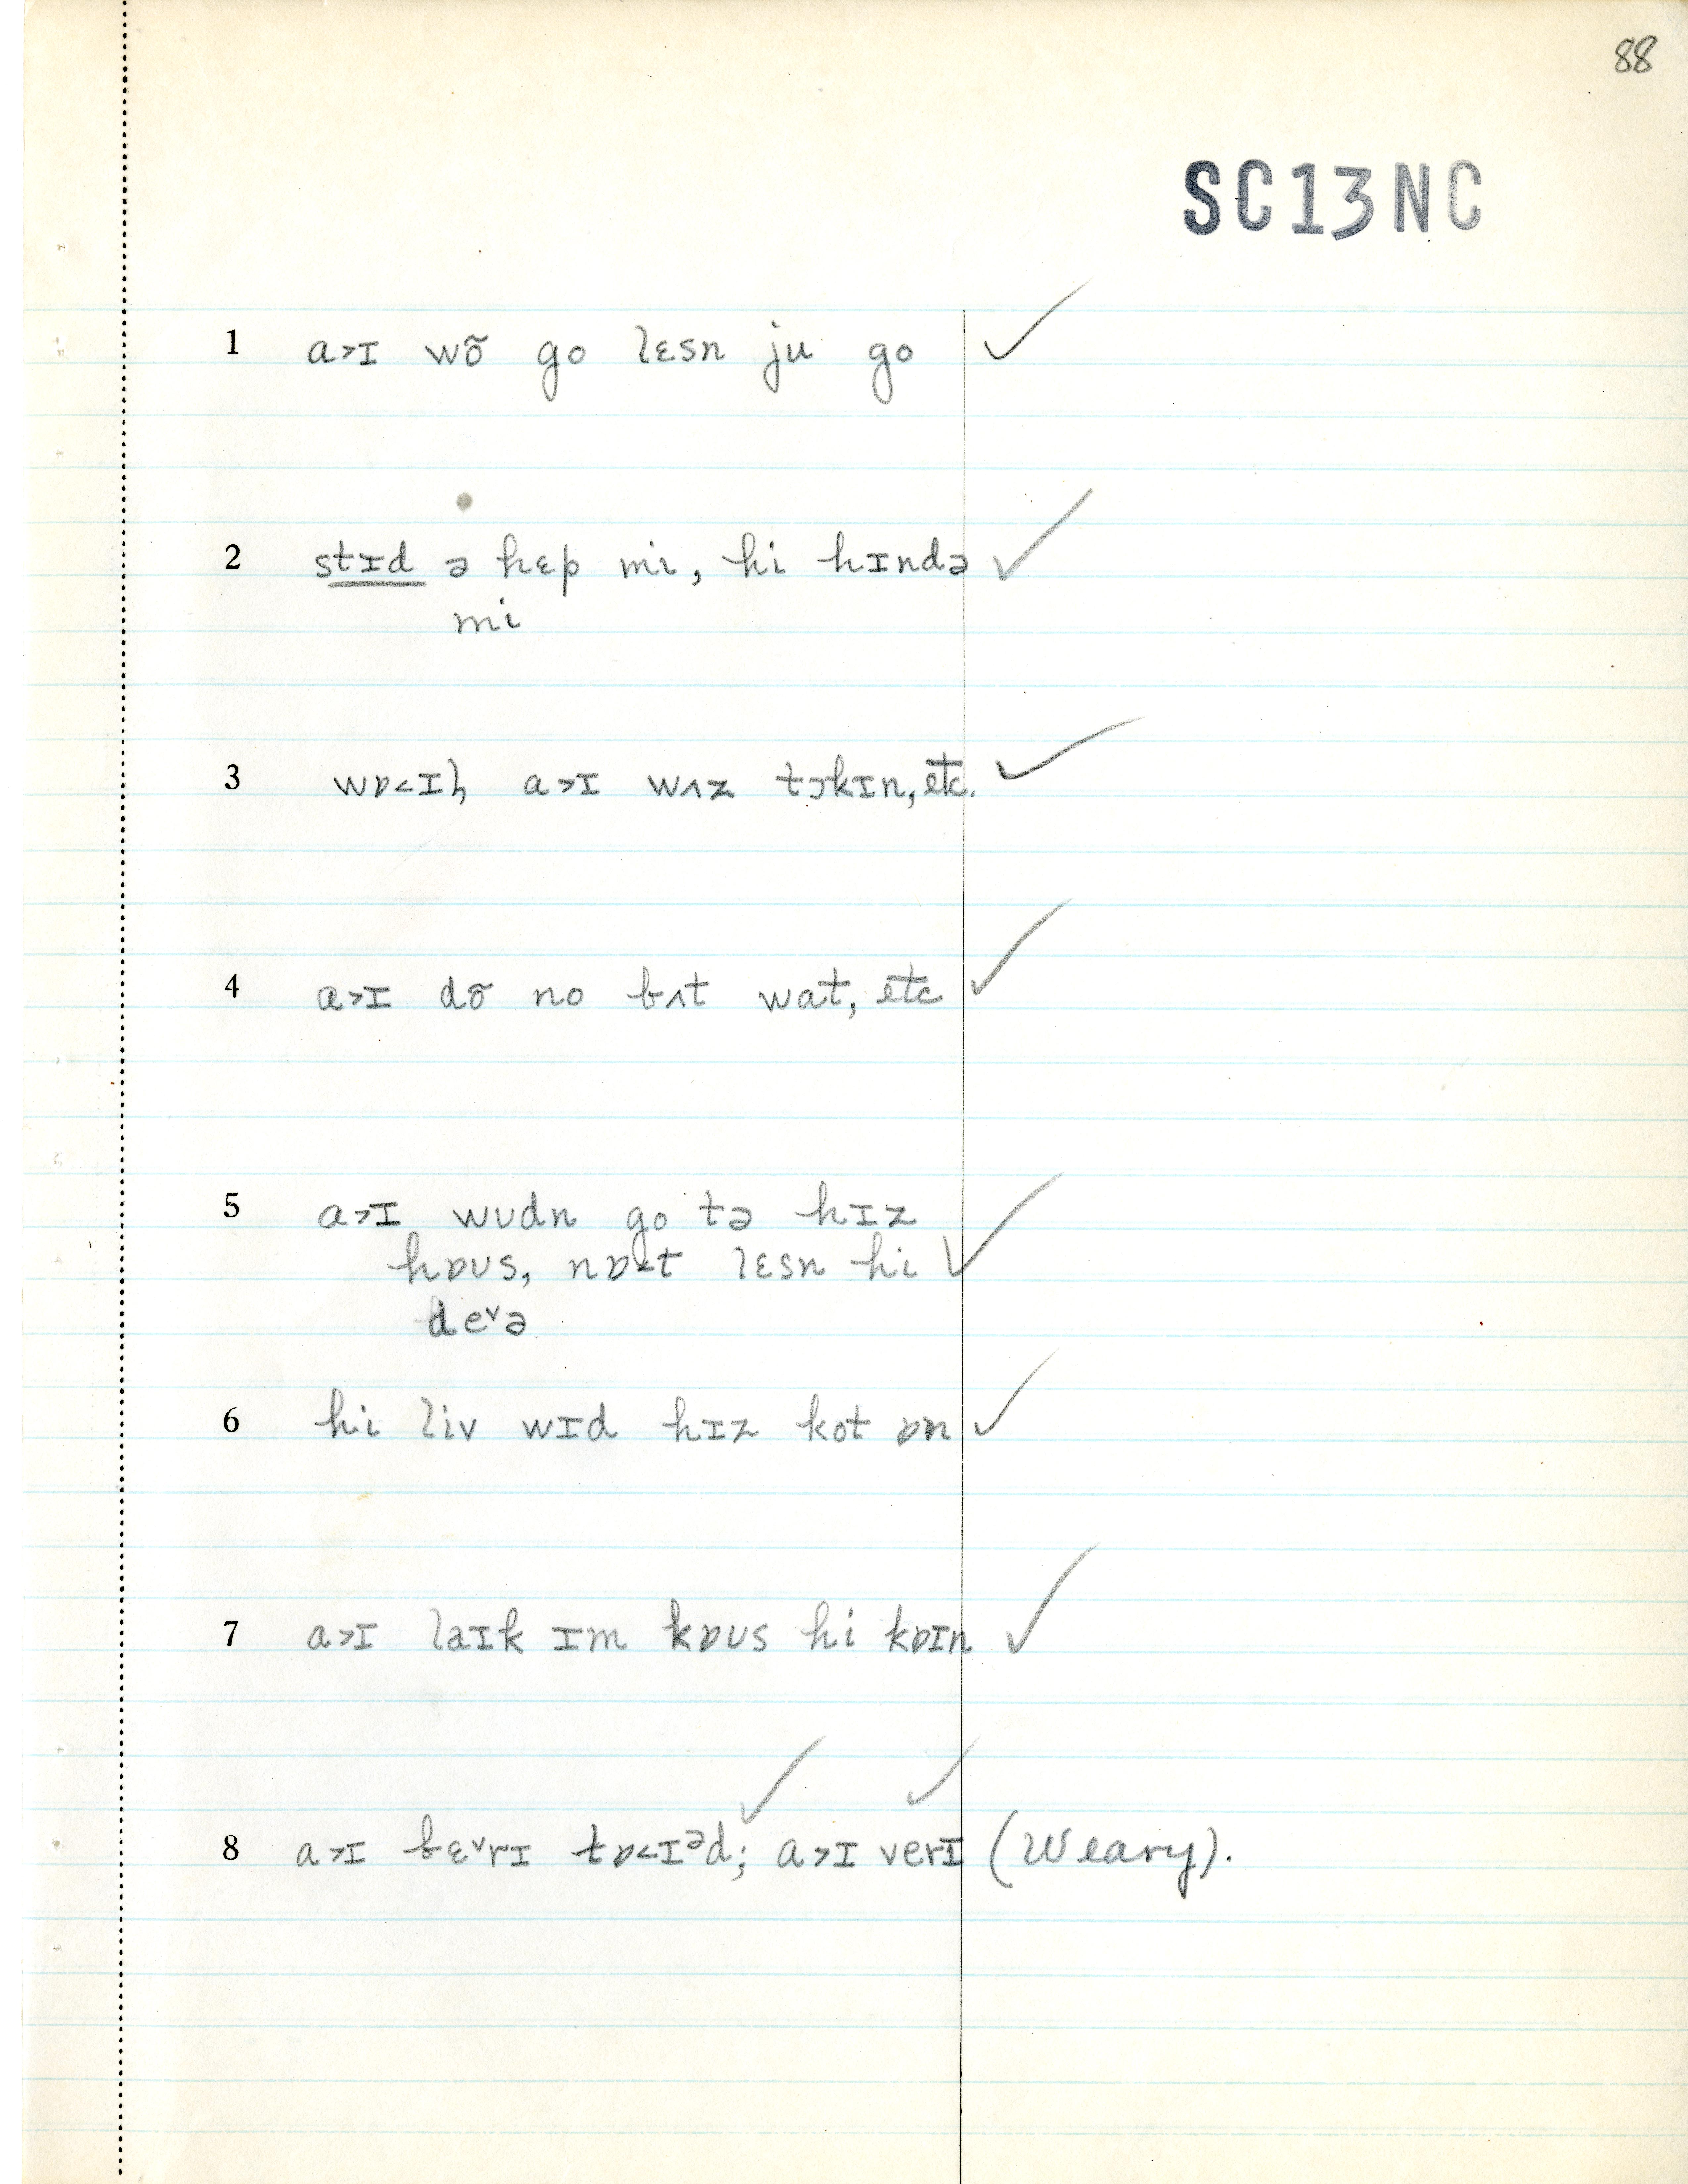 88
SC13NC
1 a>ɪ wõ go lɛsn ju go ✓
2 stɪd ə hɛp mi, hi hɪndə ✓
mi
3 wɒ<ɪɫ, a>ɪ wʌz tɔkɪn, etc. ✓
4 a>ɪ dõ no bʌt wat, etc ✓
5 a>ɪ wʊdn go tə hɪz
hɒʊs, nɒ<t lɛsn hi ✓
de˅ə
6 hi liv wɪd hɪz kot ɒn ✓
7 a>ɪ laɪk ɪm kɒʊs hi kɒɪn ✓
✓ ✓
8 a>ɪ bɛ˅rɪ tɒ<ɪᵊd; a>ɪ verɪ (Weary).